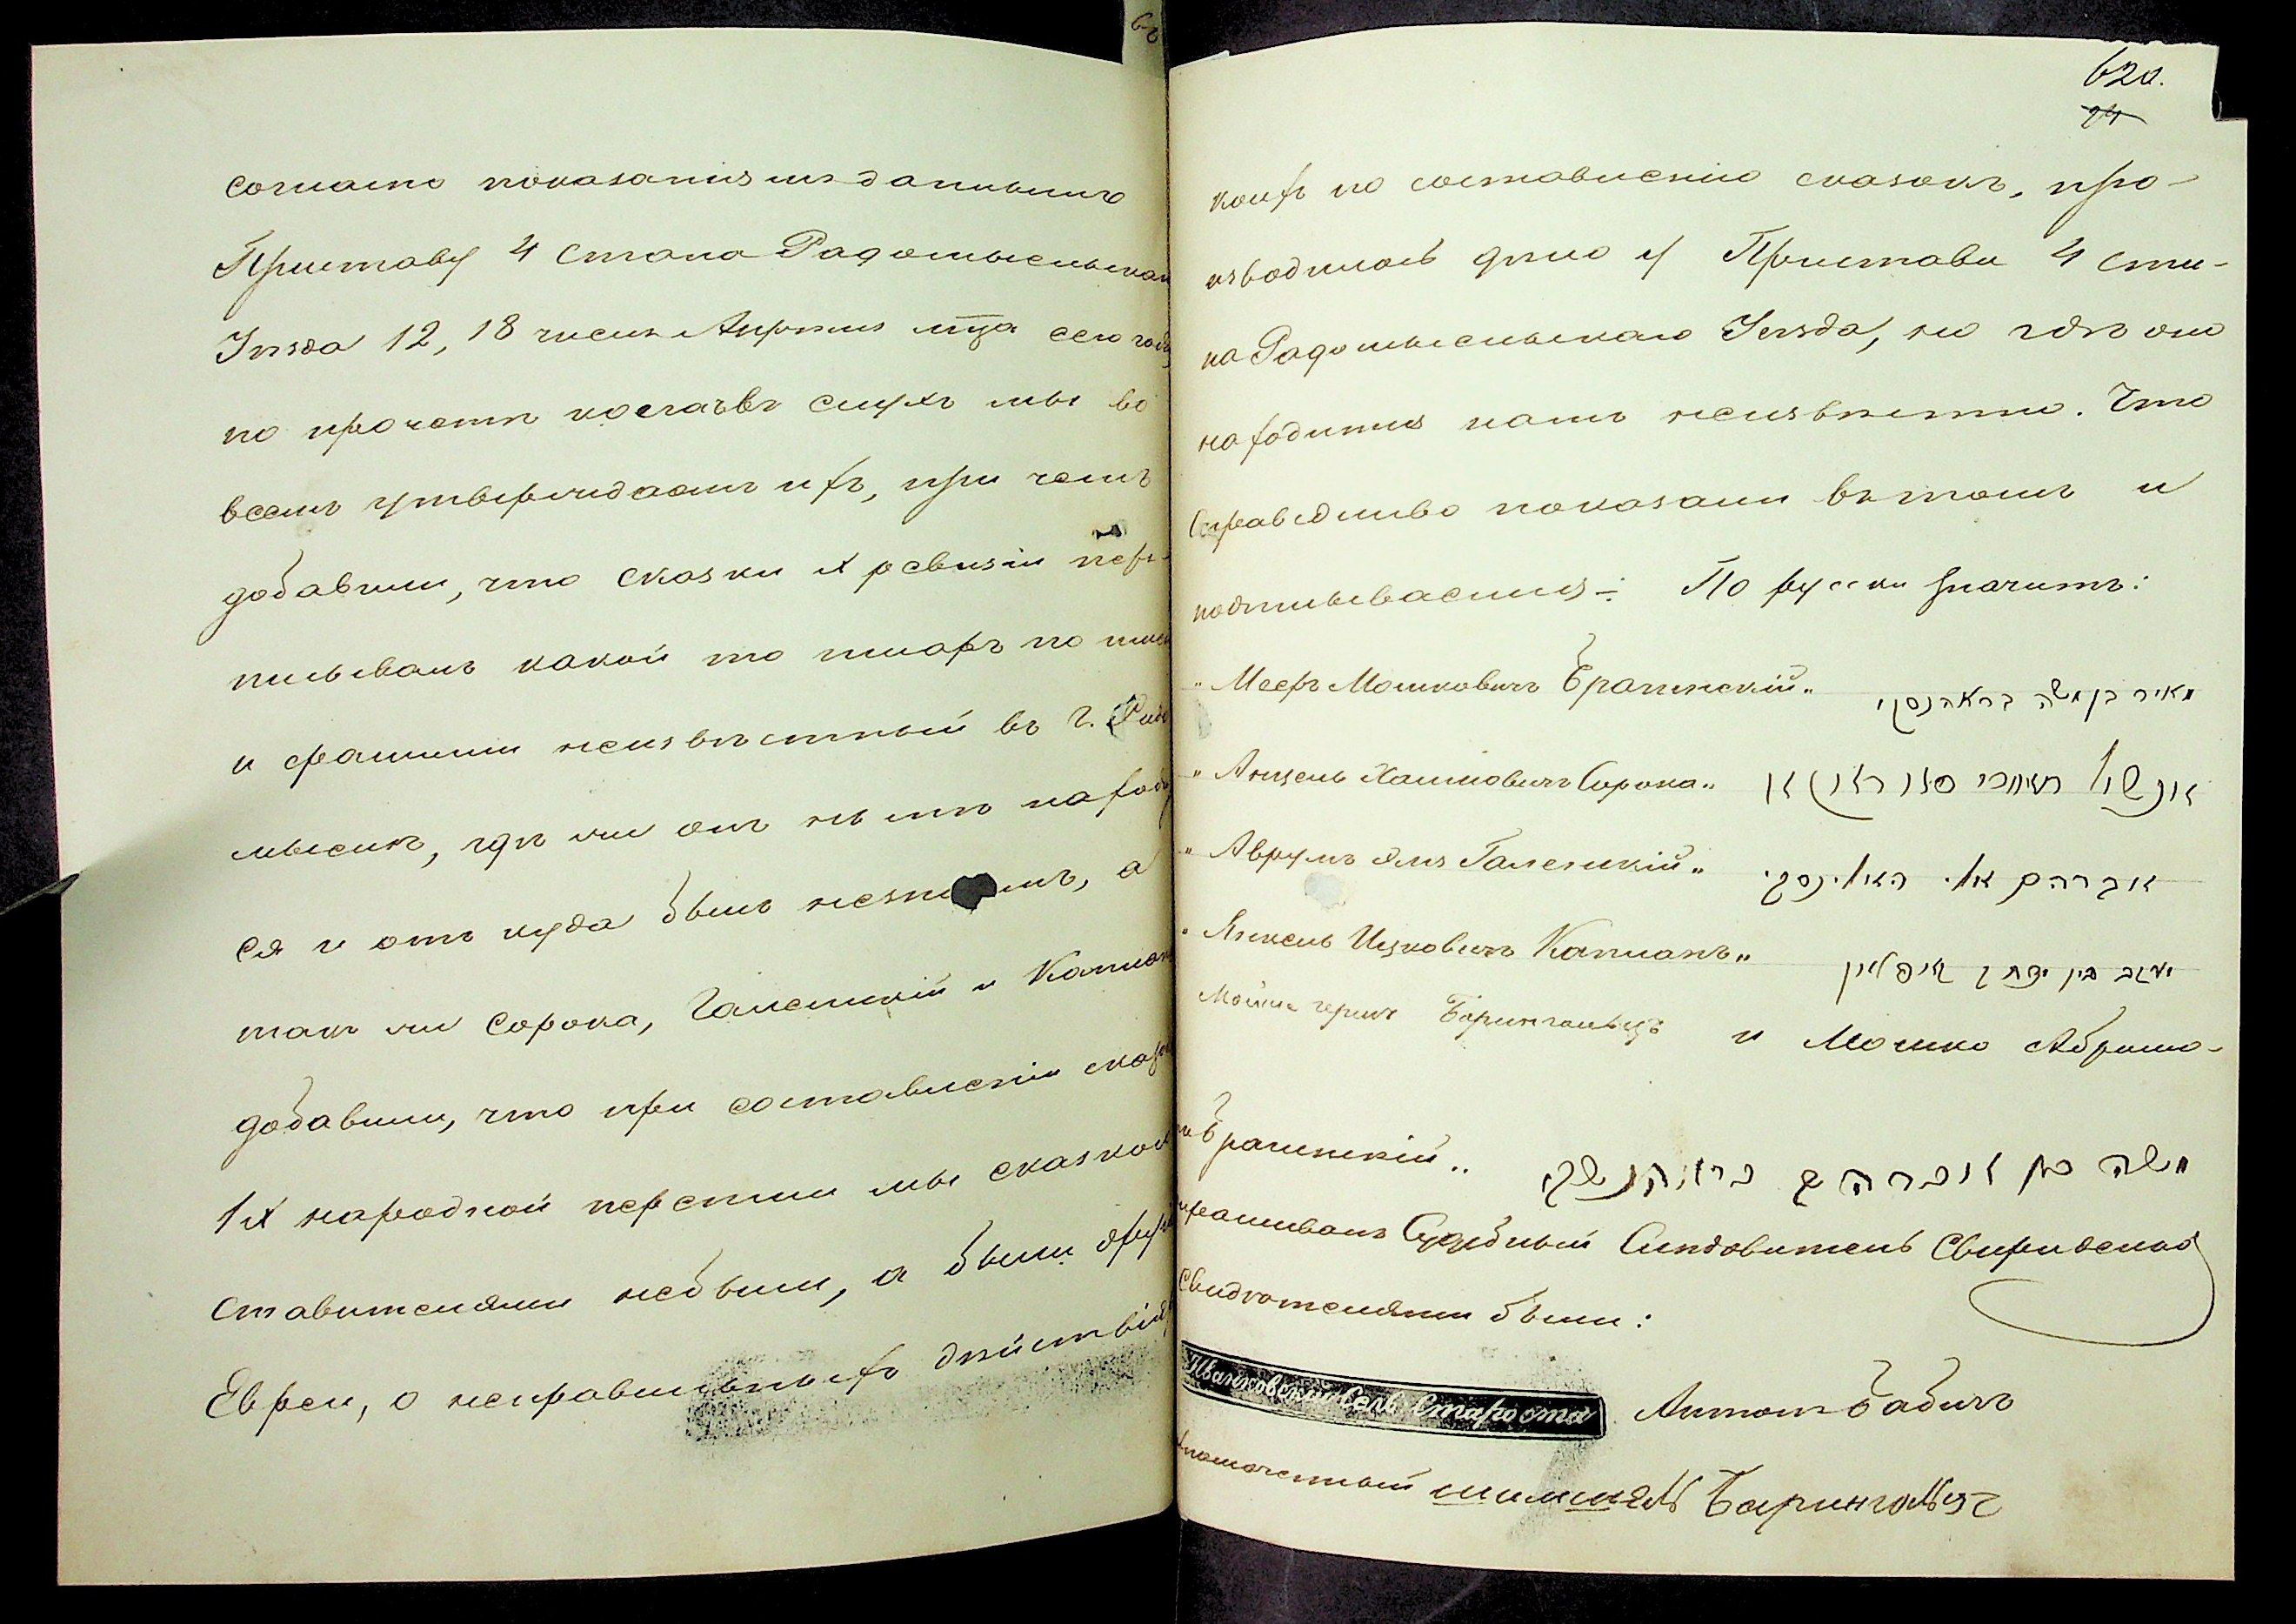 согласно показаніямъ даннымъ
Приставу 4 стана Радомысльскаго
Уѣзда 12, 18 числъ Апрѣля мца сего года,
по прочетѣ коегаъ въ слухъ мы во
всемъ утверждаемъ ихъ, при чемъ
добавили, что сказки X ревизіи пере-
писывалъ какой то писарь по имени
и фамиліи неизвѣстный въ г. Радо
мыслѣ, гдѣ ли онъ нынѣ находит
ся и отъ куда былъ незнаемъ, а
такъ ли Сорока, Галенскій и Капланъ
добавили, что при составленіи сказокъ
IX народной переписи мы сказкосо
ставителями небыли, а были другіе
Евреи, о неправильныхъ дѣйствія
62а.
24
коихъ по составленію сказокъ, про-
изводилось дѣло у Пристава 4 ста-
на Радомысльскаго Уѣзда, но гдѣ оно
находится намъ неизвѣстно. Что
справедливо показали въ томъ и
подписываемся:- По русски значитъ:
"Мееръ Мошковичъ Брагинскій" מאיר בן משה בראהינסקי
"Анцель Хаимовичъ Сорока"
"Аврумъ Эля Галенскій" אברהם אלי האלינסקי
"Янкель Ицковичъ Капланъ" יעקב בין יצחק קאפליין
Мойше герик Барингольцъ и Мошко Абрамо-
вичъ Брагинскій" משה בן אברהם בראהינסקי
спрашивалъ Судебный Слѣдователь Свириденко
Свидѣтелями были:
Иванковский Сель. Староста Антонъ Бабичъ
шимшелъ Барингольцъ